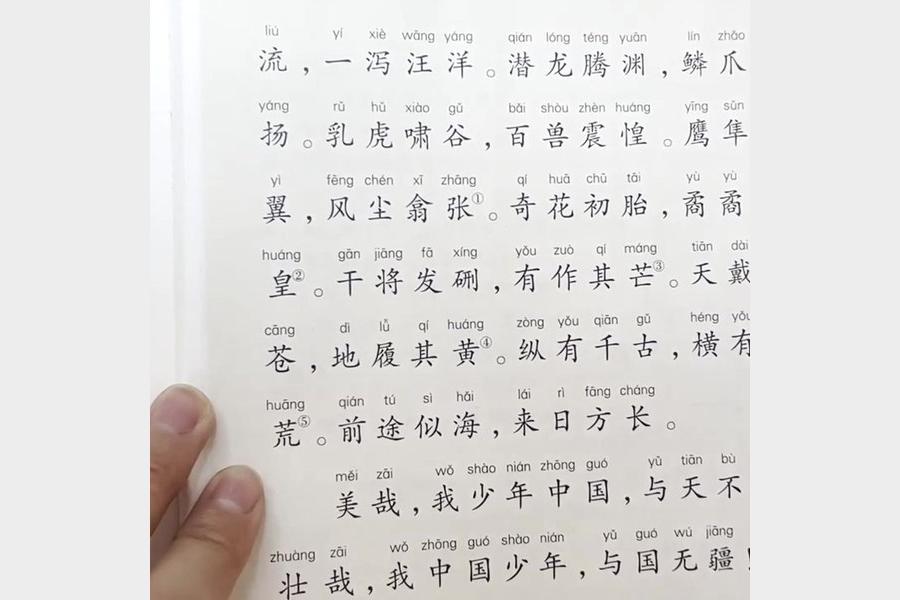 liú yí xiè wāng yáng qián lóng téng yuān lín zhǎo
流，一泻汪洋。潜龙腾渊，鳞爪
yáng rǔ hǔ xiào gǔ bǎi shòu zhèn huáng yīng sǔn
扬。乳虎啸谷，百兽震惶。鹰隼
yì fēng chén xī zhāng qí huā chū tāi yù yù
翼，风尘翕张①。奇花初胎，矞矞
huáng gān jiāng fā xíng yǒu zuò qí máng tiān dài
皇②。干将发硎，有作其芒③。天戴
cāng dì lǚ qí huáng zòng yǒu qiān gǔ héng yǒu
苍，地履其黄④。纵有千古，横有
huāng qián tú sì hǎi lái rì fāng cháng
荒⑤。前途似海，来日方长。
měi zāi wǒ shào nián zhōng guó yǔ tiān bù
美哉，我少年中国，与天不
zhuàng zāi wǒ zhōng guó shào nián yǔ guó wú jiāng
壮哉，我中国少年，与国无疆！